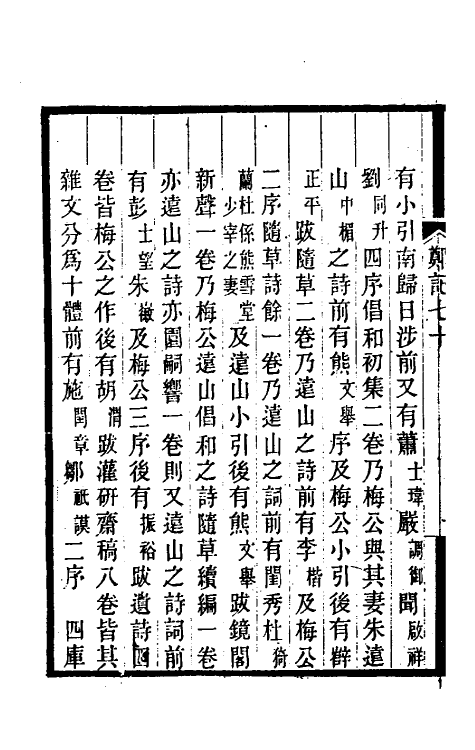 有小引南歸日涉前又有蕭士瑋嚴調御聞啟祥
劉同升四序倡和初集二卷乃梅公與其妻朱遠
山中楣之詩前有熊文舉序及梅公小引後有辥
正平跋隨草二卷乃遠山之詩前有李楷及梅公
二序隨草詩餘一卷乃遠山之詞前有閨秀杜猗
蘭杜係熊雪堂少宰之妻及遠山小引後有熊文舉跋鏡閣
新聲一卷乃梅公遠山倡和之詩隨草續編一卷
亦遠山之詩亦園嗣響一卷則又遠山之詩詞前
有彭士望朱徽及梅公三序後有振裕跋遺詩四
卷皆梅公之作後有胡渭跋灌研齋稿八卷皆其
雜文分為十體前有施閏章鄒祗謨二序 四庫
鄭記七十